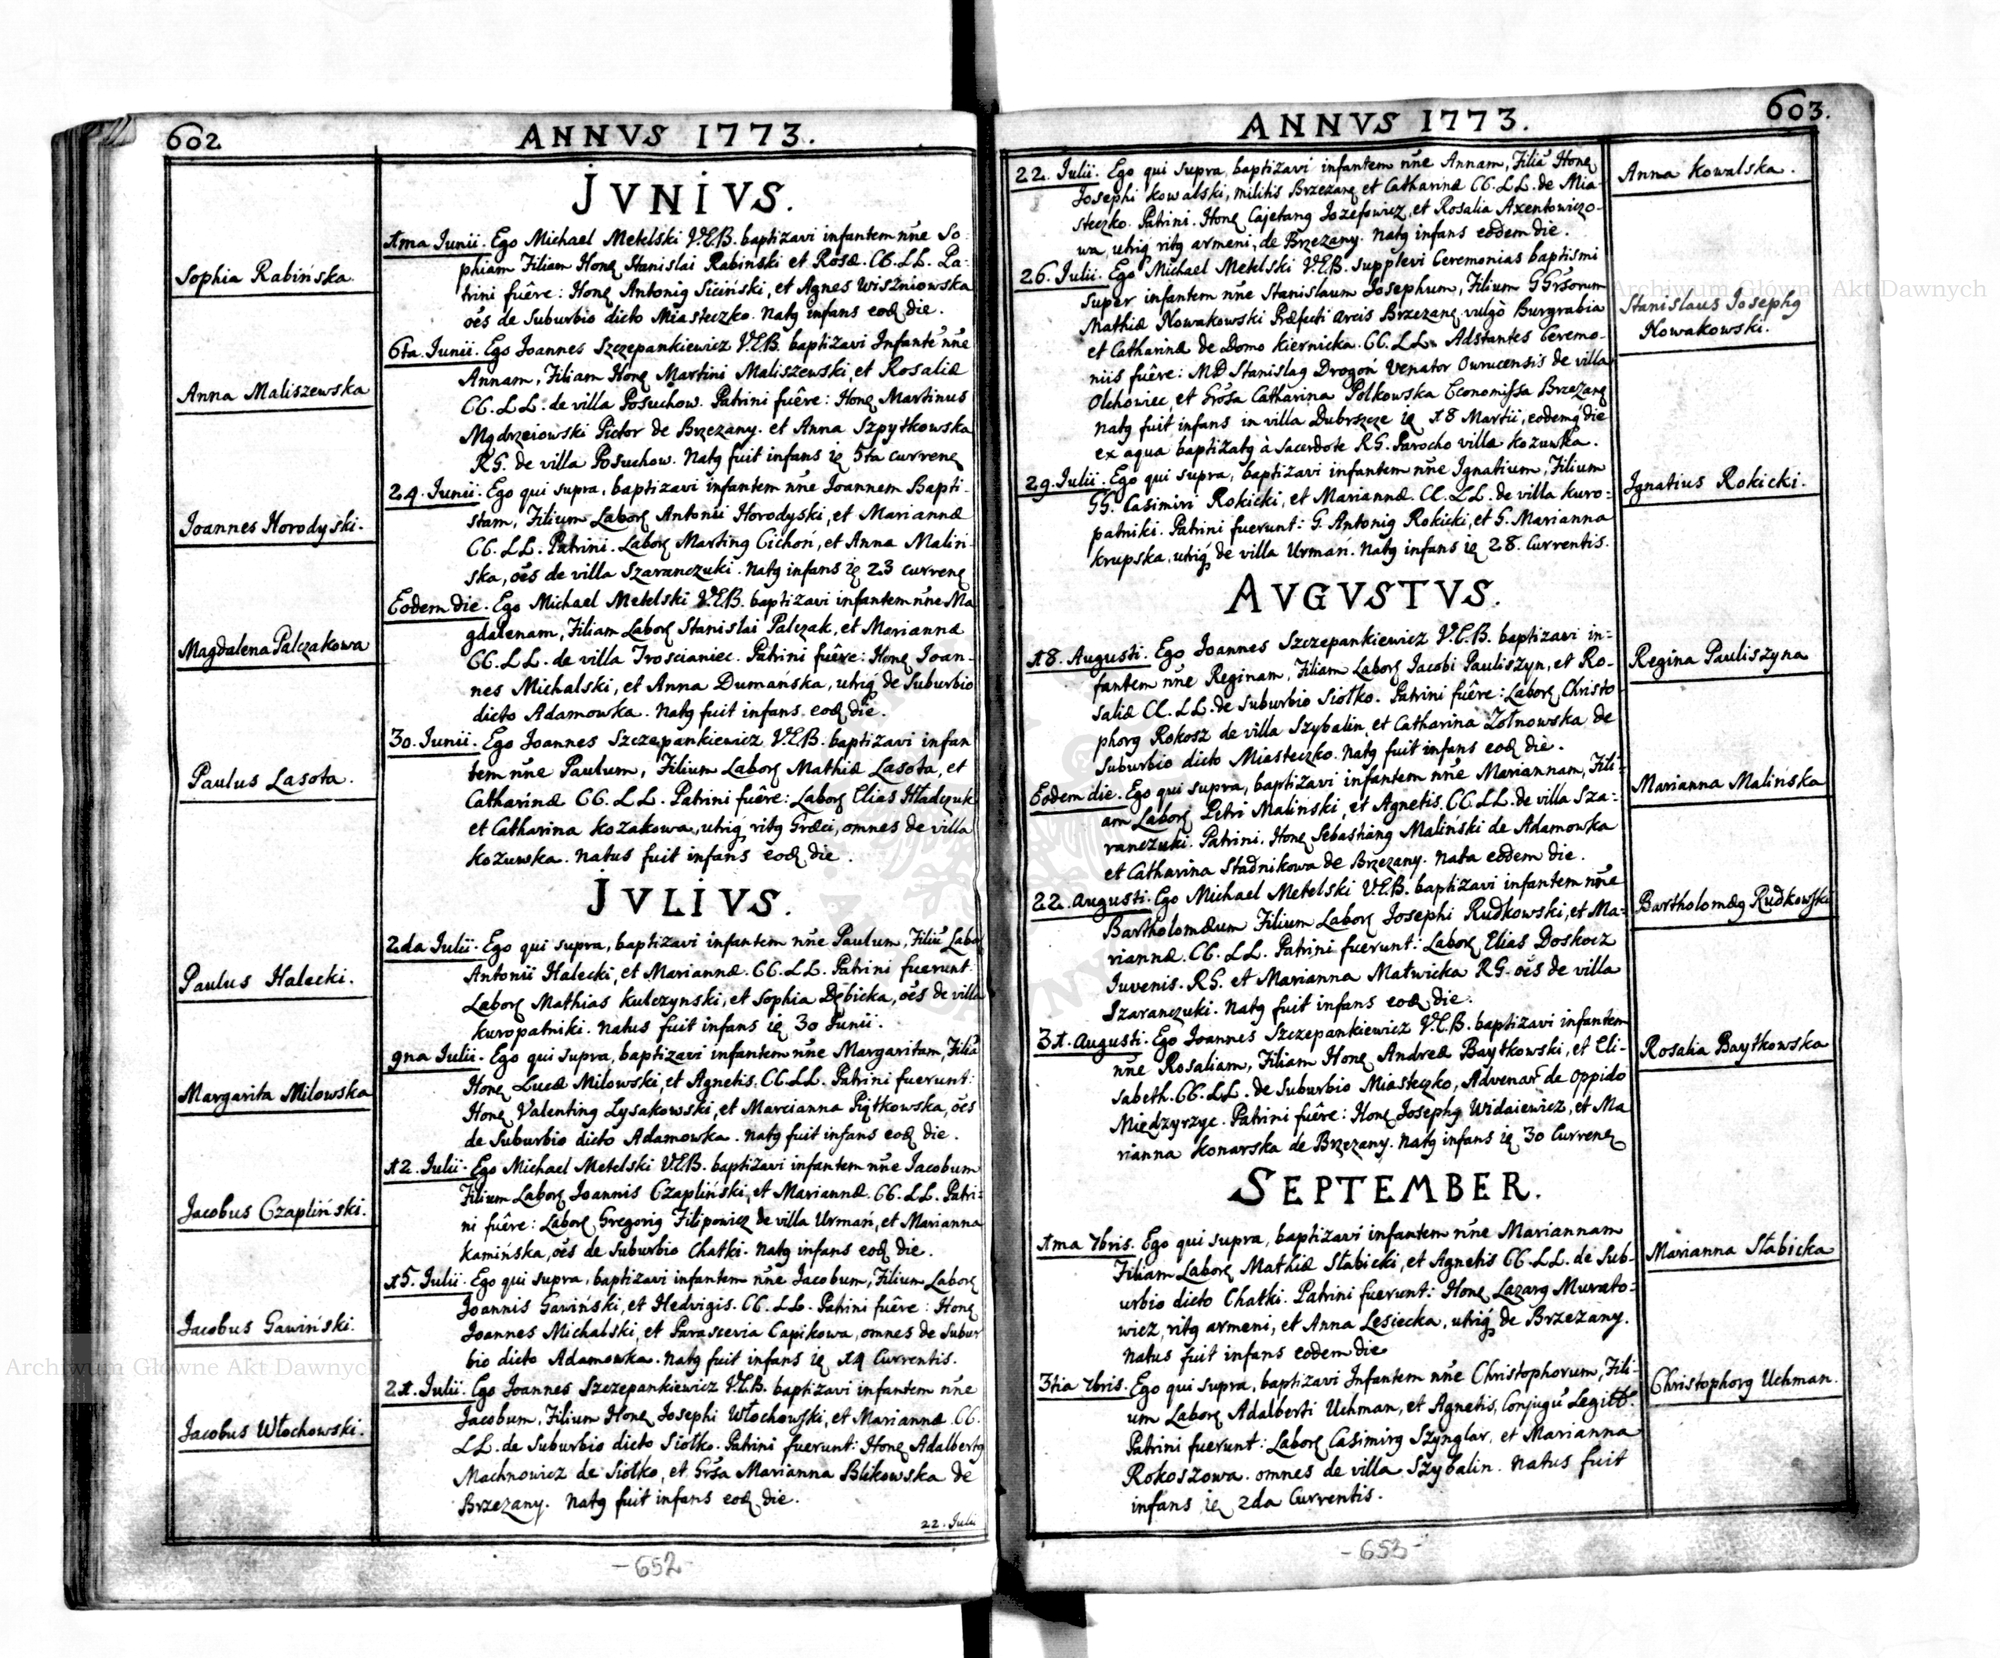 602
ANNVS 1773.
JVNIVS.
Sophia Rabińska.
1ma Junii. Ego Michael Metelski V.E.B. baptizavi infantem nñe So-
phiam Filiam Honę Stanislai Rabinski et Rosæ. CC. LL. Pa-
trini fuêre: Honę Antonig Siciński, et Agnes Wiszniowska
oẽs de Suburbio dicto Miasteczko. Natg infans eoď die.
Anna Maliszewska
6ta. Junii. Ego Joannes Szczepankiewicz V.E.B. baptizavi Infantẽ nñe
Annam, Filiam Honę Martini Maliszewski, et Rosaliæ
CC. LL. de villa Posuchow. Patrini fuêre: Honę Martinus
Mądrzeiowski Pictor de Brzezany. et Anna Szpytkowska
RG. de villa Posuchow. Natg fuit infans ię 5ta currenę
Joannes Horodyski.
24. Junii. Ego qui supra, baptizavi infantem nñe Joannem Bapti-
stam, Filium Laborę Antonii Horodyski, et Mariannæ
CC. LL. Patrini. Laborę Marting Cichoń, et Anna Malin-
ska, oẽs de villa Szaranczuki. Natg infans ię 23 currenę
Magdalena Palczakowa
Eodem die. Ego Michael Metelski V.E.B. baptizavi infantem nñe Ma
gdalenam, Filiam Laborę Stanislai Palczak, et Mariannæ
CC. LL. de villa Troscianiec. Patrini fuêre: Honę Joan-
nes Michalski, et Anna Dumańska, utriq̃ de Suburbio
dicto Adamowka. Natg fuit infans eoď die.
Paulus Lasota.
30. Junii. Ego Joannes Szczepankiewicz V.E.B. baptizavi infan
tem nñe Paulum, Filium Laborę Mathiæ Lasota, et
Catharinæ CC. LL. Patrini fuêre: Laborę Elias Hładczuk
et Catharina Kozakowa, utriq̃ ritg Græci, omnes de villa
Kozuwka. Natus fuit infans eoď die.
JVLIVS.
Paulus Halecki.
2da Julii. Ego qui supra, baptizavi infantem nñe Paulum, Filiũ Labo
Antonii Halecki, et Mariannæ. CC. LL. Patrini fuerunt:
Laborę Mathias Kulczynski, et Sophia Dębicka, oẽs de villa
Kuropatniki. Natus fuit infans ię 30 Junii.
Margarita Milowska
9na Julii. Ego qui supra, baptizavi infantem nñe Margaritam, Filiã
Honę Lucæ Milowski, et Agnetis. CC. LL. Patrini fuerunt:
Honę Valenting Lysakowski, et Marcianna Piątkowska, oẽs
de Suburbio dicto Adamowka. Natg fuit infans eoď die.
Jacobus Czapliński.
12. Julii. Ego Michael Metelski V.E.B. baptizavi infantem nñe Jacobum
Filium Laborę Joannis Czapliński, et Mariannæ. CC. LL. Patri-
ni fuêre: Laborę Gregorig Filipowicz de villa Urmań, et Marianna
Kamińska, oẽs de Suburbio Chatki. Natg infans eoď die.
Jacobus Gawiński.
15. Julii. Ego qui supra, baptizavi infantem nñe Jacobum, Filium Laborę
Joannis Gawiński, et Hedvigis. CC. LL. Patrini fuêre: Honę
Joannes Michalski, et Parascevia Capikowa, omnes de Subur
bio dicto Adamowka. Natg fuit infans ię 14 Currentis.
Jacobus Włochowski.
21. Julii. Ego Joannes Szczepankiewicz V.E.B. baptizavi infantem nñe
Jacobum, Filium Honę Josephi Włochowski, et Mariannæ. CC.
LL. de Suburbio dicto Siołko. Patrini fuerunt: Honę Adalbertg
Machnowicz de Siołko, et Grs̃a Marianna Blikowska de
Brzezany. Natg fuit infans eoď die.
22. Julii
-652-
603.
ANNVS 1773.
22. Julii. Ego qui supra, baptizavi infantem nñe Annam, Filiã Honę
Josephi Kowalski, militis Brzezanę et Catharinæ CC. LL. de Mia-
steczko. Patrini. Honę Cajetang Jozefowicz, et Rosalia Axentowiczo-
wa, utriq̃ ritg armeni, de Brzezany. Natg infans eodem die.
Anna Kowalska.
26. Julii. Ego Michael Metelski V.E.B. supplevi Ceremonias baptismi
super infantem nñe Stanislaum Josephum, Filium GGrs̃orum
Mathiæ Nowakowski Præfecti Arcis Brzezanę vulgò Burgrabia
et Catharinæ de Domo Kiernicka. CC. LL. Adstantes Ceremo-
niis fuêre: MD Stanislag Drogoń Venator Owrucensis de villa
Olchowiec, et Grs̃a Catharina Polkowska Economissa Brzezanę
Natg fuit infans in villa Dubrszcze ię 18 Martii, eodemq̃ die
ex aqua baptizatg à Sacerdote RG. Parocho villæ Kozuwka.
Stanislaus Josephg
Nowakowski.
29. Julii. Ego qui supra, baptizavi infantem nñe Ignatium, Filium
GG. Casimiri Rokicki, et Mariannæ. CC. LL. de villa Kuro-
patniki. Patrini fuerunt: G. Antonig Rokicki, et G. Marianna
Krupska, utriq̃ de villa Urmań. Natg infans ię 28. Currentis.
Ignatius Rokicki.
AVGVSTVS.
18. Augusti. Ego Joannes Szczepankiewicz V.E.B. baptizavi in-
fantem nñe Reginam, Filiam Laborę Jacobi Pauliszyn, et Ro-
saliæ CC. LL. de Suburbio Siołko. Patrini fuêre: Laborę Christo
phorg Rokosz de villa Szybalin, et Catharina Zołnowska de
Suburbio dicto Miasteczko. Natg fuit infans eoď die.
Regina Pauliszyna
Eodem die. Ego qui supra, baptizavi infantem nñe Mariannam, Fili-
am Laborę Petri Malinski, et Agnetis. CC. LL. de villa Sza-
ranczuki. Patrini. Honę Sebastiang Maliński de Adamowka
et Catharina Stadnikowa de Brzezany. Nata eodem die.
Marianna Malińska
22. Augusti. Ego Michael Metelski V.E.B. baptizavi infantem nñe
Bartholomæum Filium Laborę Josephi Rudkowski, et Ma-
riannæ. CC. LL. Patrini fuerunt: Laborę Elias Doskocz
Iuvenis. RG. et Marianna Matwicka RG. oẽs de villa
Szaranczuki. Natg fuit infans eoď die.
Bartholomæg Rudkowski
31. Augusti. Ego Joannes Szczepankiewicz V.E.B. baptizavi infantem
nñe Rosaliam, Filiam Honę Andreæ Baytkowski, et Eli-
sabeth. CC. LL. de Suburbio Miasteczko, Advenar̃ de Oppido
Międzyrzyc. Patrini fuêre: Honę Josephg Widaiewicz, et Ma
rianna Konarska de Brzezany. Natg infans ię 30 Currenę
Rosalia Baytkowska
SEPTEMBER.
1ma 7bris. Ego qui supra, baptizavi infantem nñe Mariannam
Filiam Laborę Mathiæ Słabicki, et Agnetis CC. LL. de Sub-
urbio dicto Chatki. Patrini fuerunt: Honę Lazarg Murato-
wicz, ritg armeni, et Anna Lesiecka, utriq̃ de Brzezany.
Natus fuit infans eodem die
Marianna Słabicka
3tia 7bris. Ego qui supra, baptizavi Infantem nñe Christophorum, Fili-
um Laborę Adalberti Uchman, et Agnetis, Conjugũ Legitt.
Patrini fuerunt: Laborę Casimirg Szynglar, et Marianna
Rokoszowa. omnes de villa Szybalin. Natus fuit
infans ię 2da Currentis.
Christophorg Uchman.
-653-
Archiwum Główne Akt Dawnych
Archiwum Główne Akt Dawnych